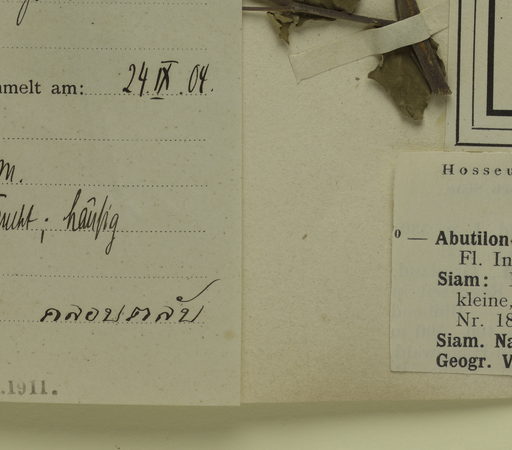 mmelt am: 24.IX.04.
m.
häufig
คลอบตลับ
.1911.
Hosseu
0 — Abutilon
Fl. In
Siam:
kleine,
Nr. 18
Siam. Na
Geogr. V